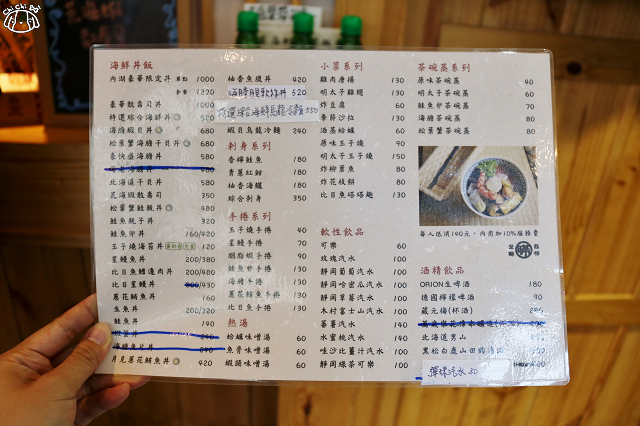 Chi Chi Bo
海鮮丼飯
內湖豪華限定丼 單點 1000
套餐 1220
豪華散壽司丼 1000
特選綜合海鮮丼 520
海膽蝦貝丼 680
松葉蟹下海膽干貝丼
豪快香海膽丼 980
北海道干貝丼 580
昆海蝦散壽司 350
松葉蟹鮭親丼 480
鮭魚親子丼 320
鮭魚卵丼 160/420
玉子燒海苔丼
星鰻魚丼 200/480
比目魚鰭邊肉丼 200/480
比目星鰻丼 430
蔥花鮪魚丼 160
生魚丼 200/320
鮭魚丼 140
蝦蟹丼 240
240
月見蔥花鮪魚丼 420
柚香魚腹丼 420
520
特選綜合海鮮烏龍冷麵 350
蝦貝烏龍冷麵 240
刺身系列
香檸鮭魚 180
青蔥紅魽 180
柚香海鱺 180
綜合刺身 350
手捲系列
玉子燒手捲 90
星鰻手捲 70
胭脂蝦手捲 90
鮭魚卵手捲 130
海膽手捲 130
蔥花鮪魚手捲 130
比目魚手捲 130
熱湯
蛤蠣味噌湯 60
魚骨味噌湯 60
蝦頭味噌湯 60
小菜系列
雞肉唐揚 130
明太子雞翅 130
炸豆腐 60
季節沙拉 130
酒蒸蛤蠣 60
原味玉子燒 130
明太子玉子燒 150
炸柳葉魚 80
炸花枝餅 80
比目魚塔塔捲 130
軟性飲品
可樂 60
玫瑰汽水 100
靜岡葡萄汽水 100
靜岡哈密瓜汽水 100
靜岡草莓汽水 100
木村富士山汽水 100
蕃薯汽水 140
水蜜桃汽水 140
哇沙比薑汁汽水 100
靜岡綠茶可樂 160
茶碗蒸系列
原味茶碗蒸 40
明太子茶碗蒸 60
鮭魚卵茶碗蒸 90
海膽茶碗蒸 90
松葉蟹茶碗蒸 90
每人低消190元,內用加10%服務費
酒精飲品
ORION生啤酒 180
德國檸檬啤酒 90
藏元梅(杯酒) 280
北海道男山
黑松白鹿山田錦
彈珠汽水 80